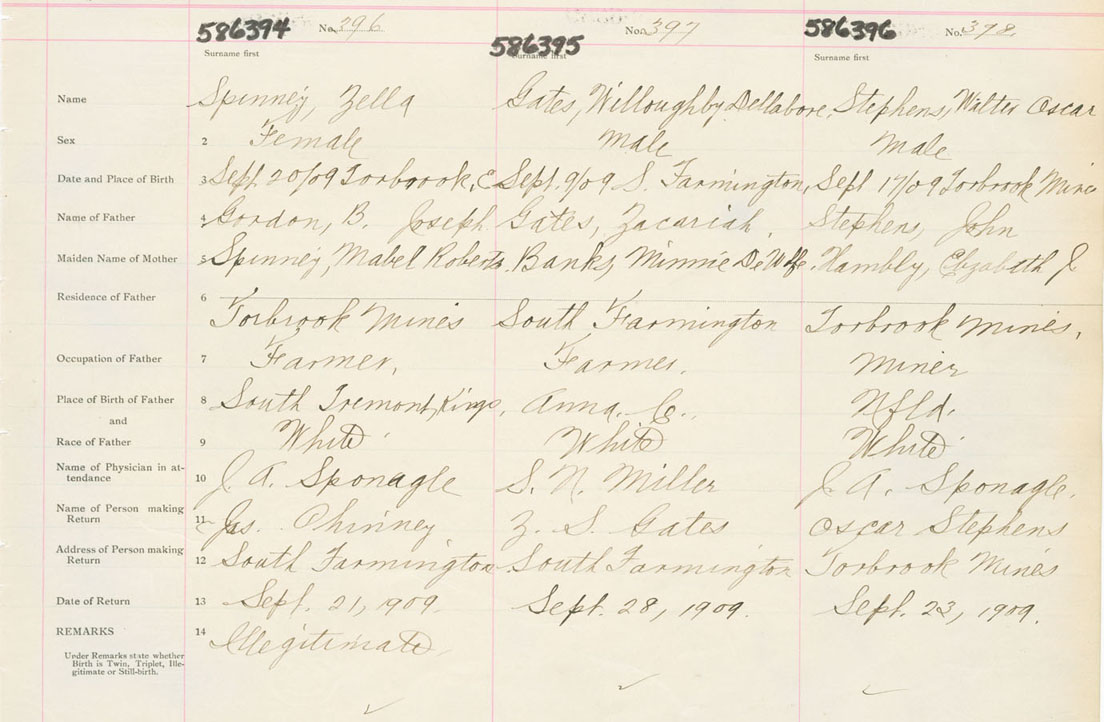 586394 No. 396 586395 No. 397 586396 No. 398
Surname first Surname first Surname first
Name Spinney, Zella Gates, Willoughby Dellabore, Stephens, Walter Oscar
Sex 2 Female Male Male
Date and Place of Birth 3 Sept 20/09 Torbrook, Sept. 9/09 S. Farmington, Sept 17/09 Torbrook Mines
Name of Father 4 Gordon, B. Joseph Gates, Zacariah, Stephens, John
Maiden Name of Mother 5 Spinney, Mabel Roberta. Banks, Minnie DeWolfe. Hambly, Elizabeth J
Residence of Father 6 Torbrook Mines South Farmington Torbrook Mines,
Occupation of Father 7 Farmer, Farmer, Miner
Place of Birth of Father 8 South Tremont, Kings, Anna. C., Nfld.
and
Race of Father 9 White White White
Name of Physician in at-
tendance 10 J. A. Sponagle S. N. Miller J. A. Sponagle,
Name of Person making
Return 11 Jas. Phinney Z. S. Gates Oscar Stephens
Address of Person making
Return 12 South Farmington South Farmington Torbrook Mines
Date of Return 13 Sept. 21, 1909. Sept. 28, 1909. Sept. 23, 1909.
REMARKS 14 Illegitimate
Under Remarks state whether
Birth is Twin, Triplet, Ille-
gitimate or Still-birth.